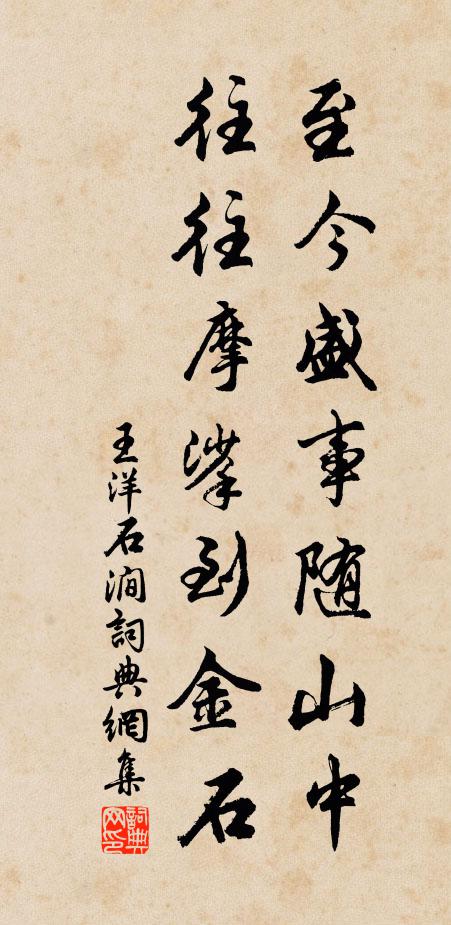 至今盛事随山中
往往摩挲到金石
王洋石涧詞典網集
詞典网印